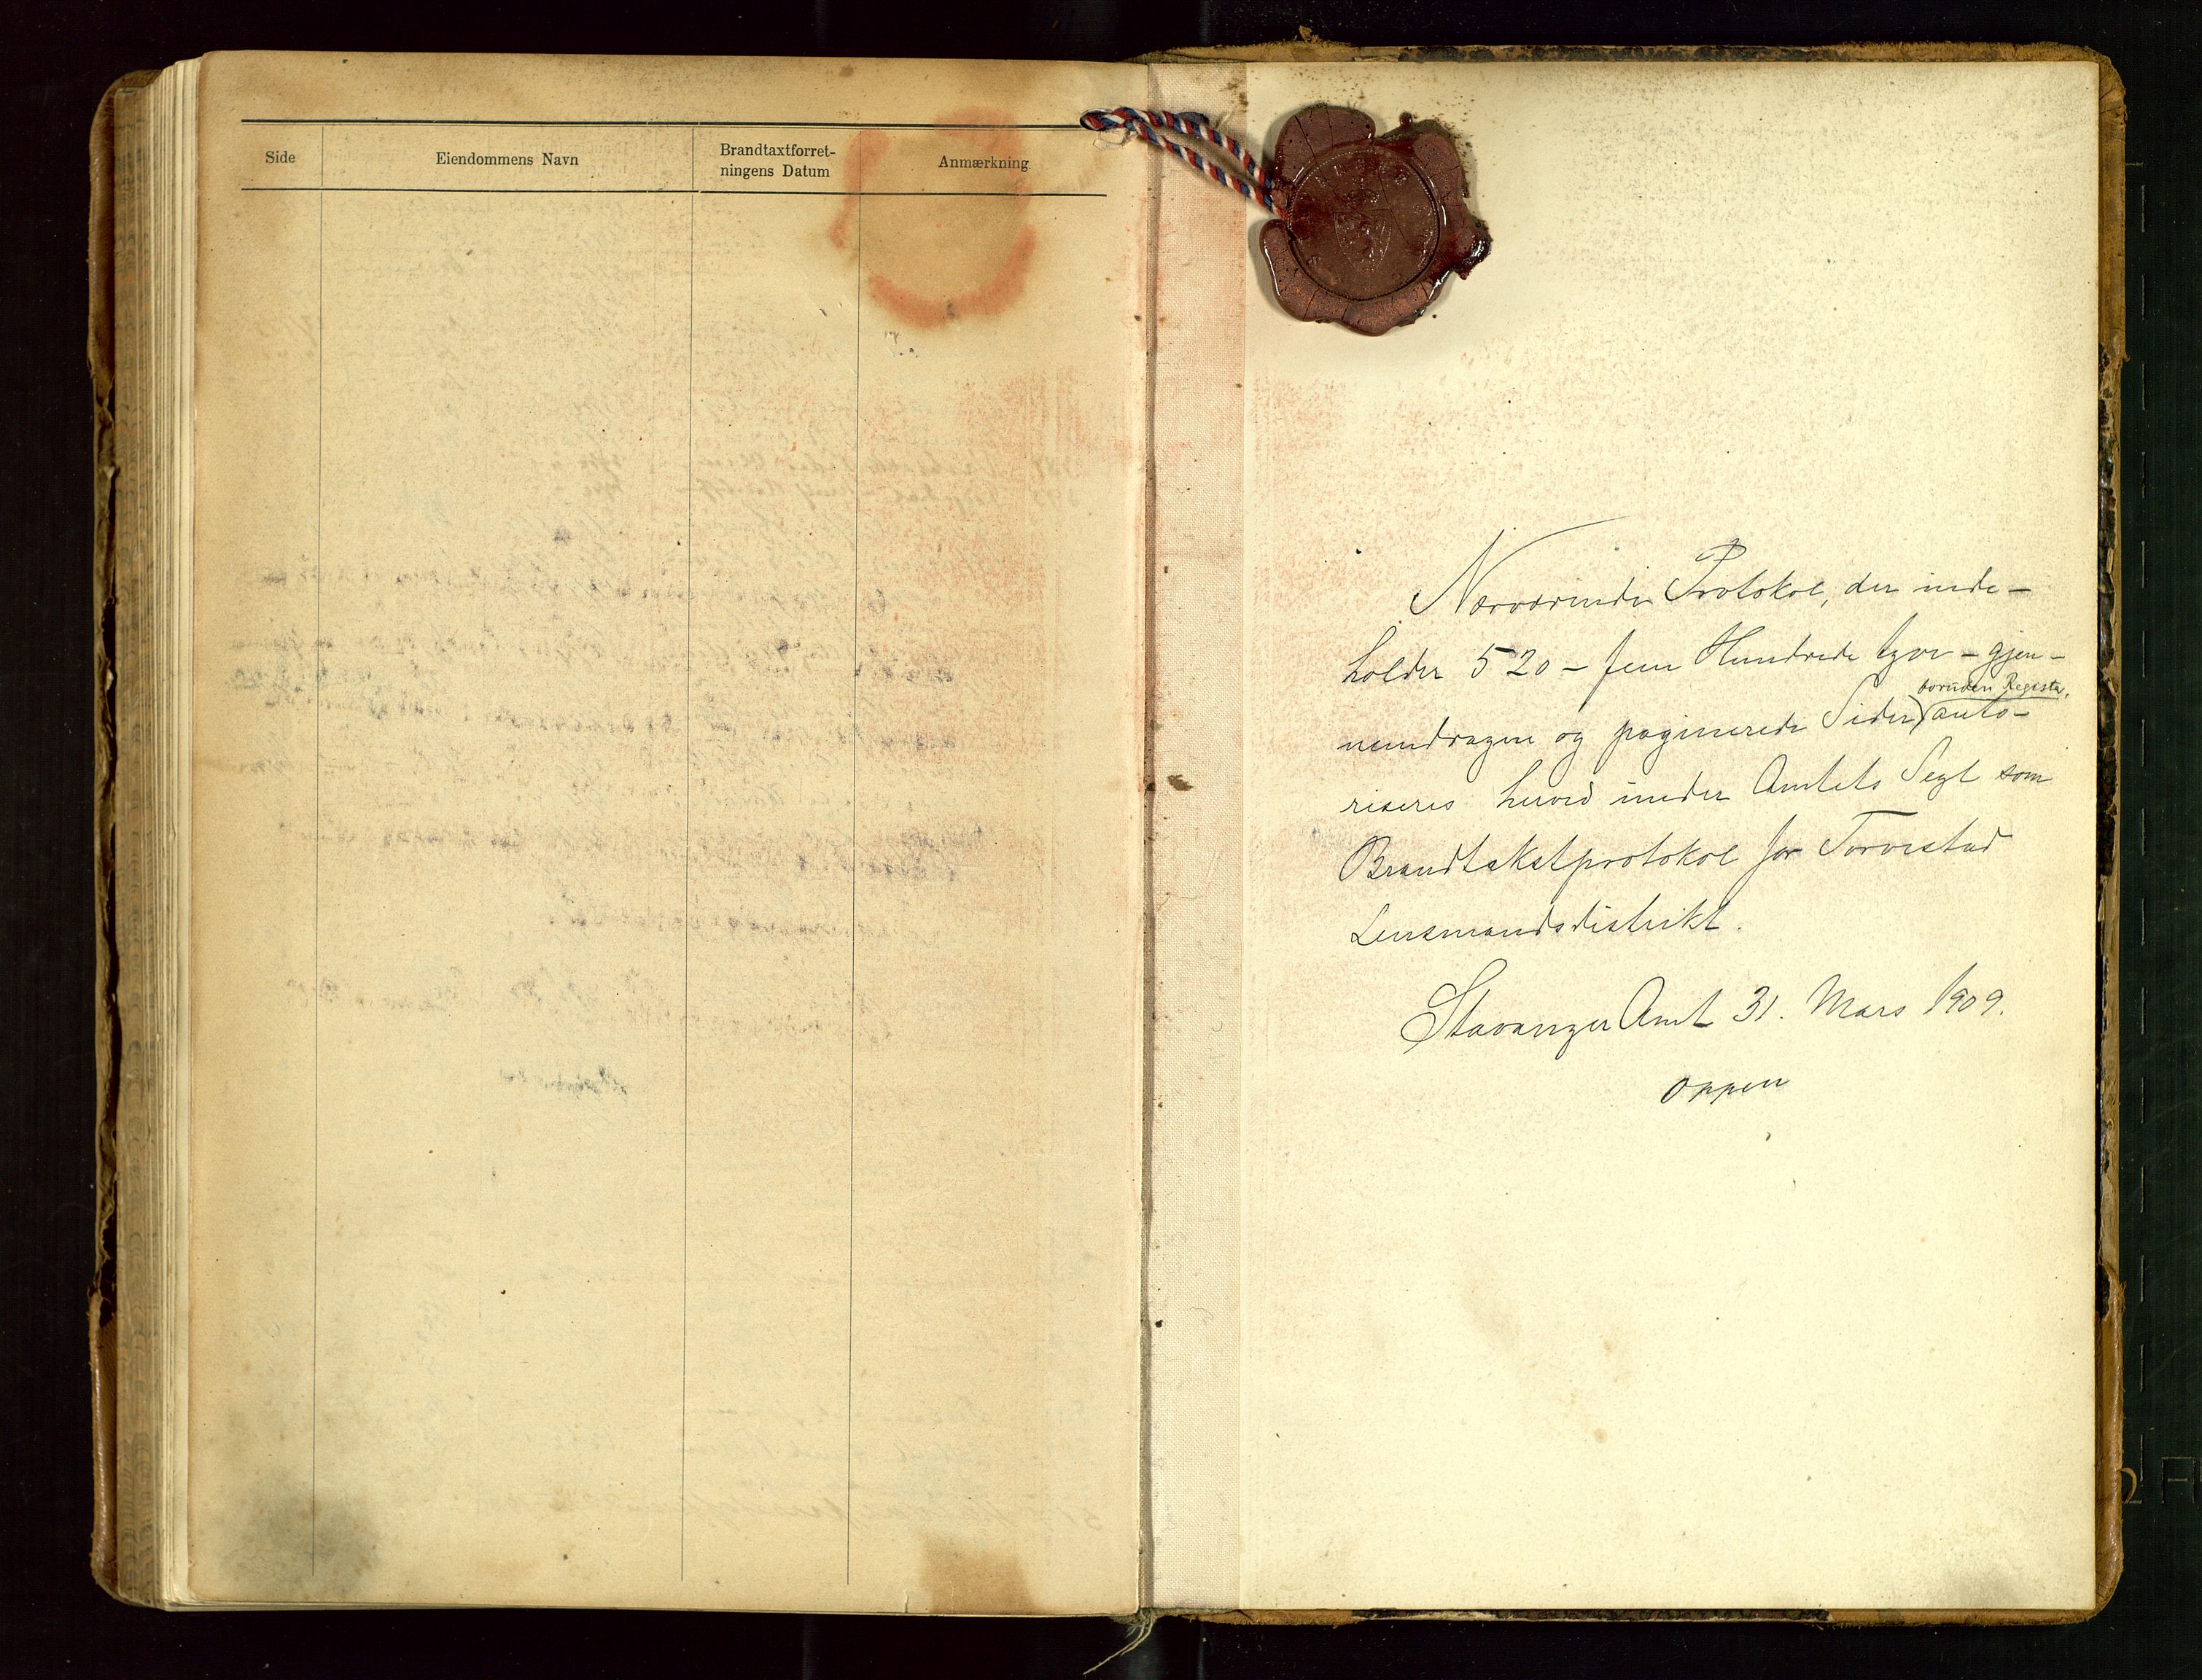 Side
Eiendommens Navn
Brandtaxtforret-
ningens Datum
Anmærkning
Nærværende Protokol, der inde-
holder 520 - fem Hundrede tyve - gjen-
nemdragne og paginerede Sider, foruden Register, auto-
riseres herved under Amtets Segl som
Brandtakstprotokol for Torvestad
Lensmandsdistrikt.
Stavanger Amt 31. Mars 1909.
Oppen